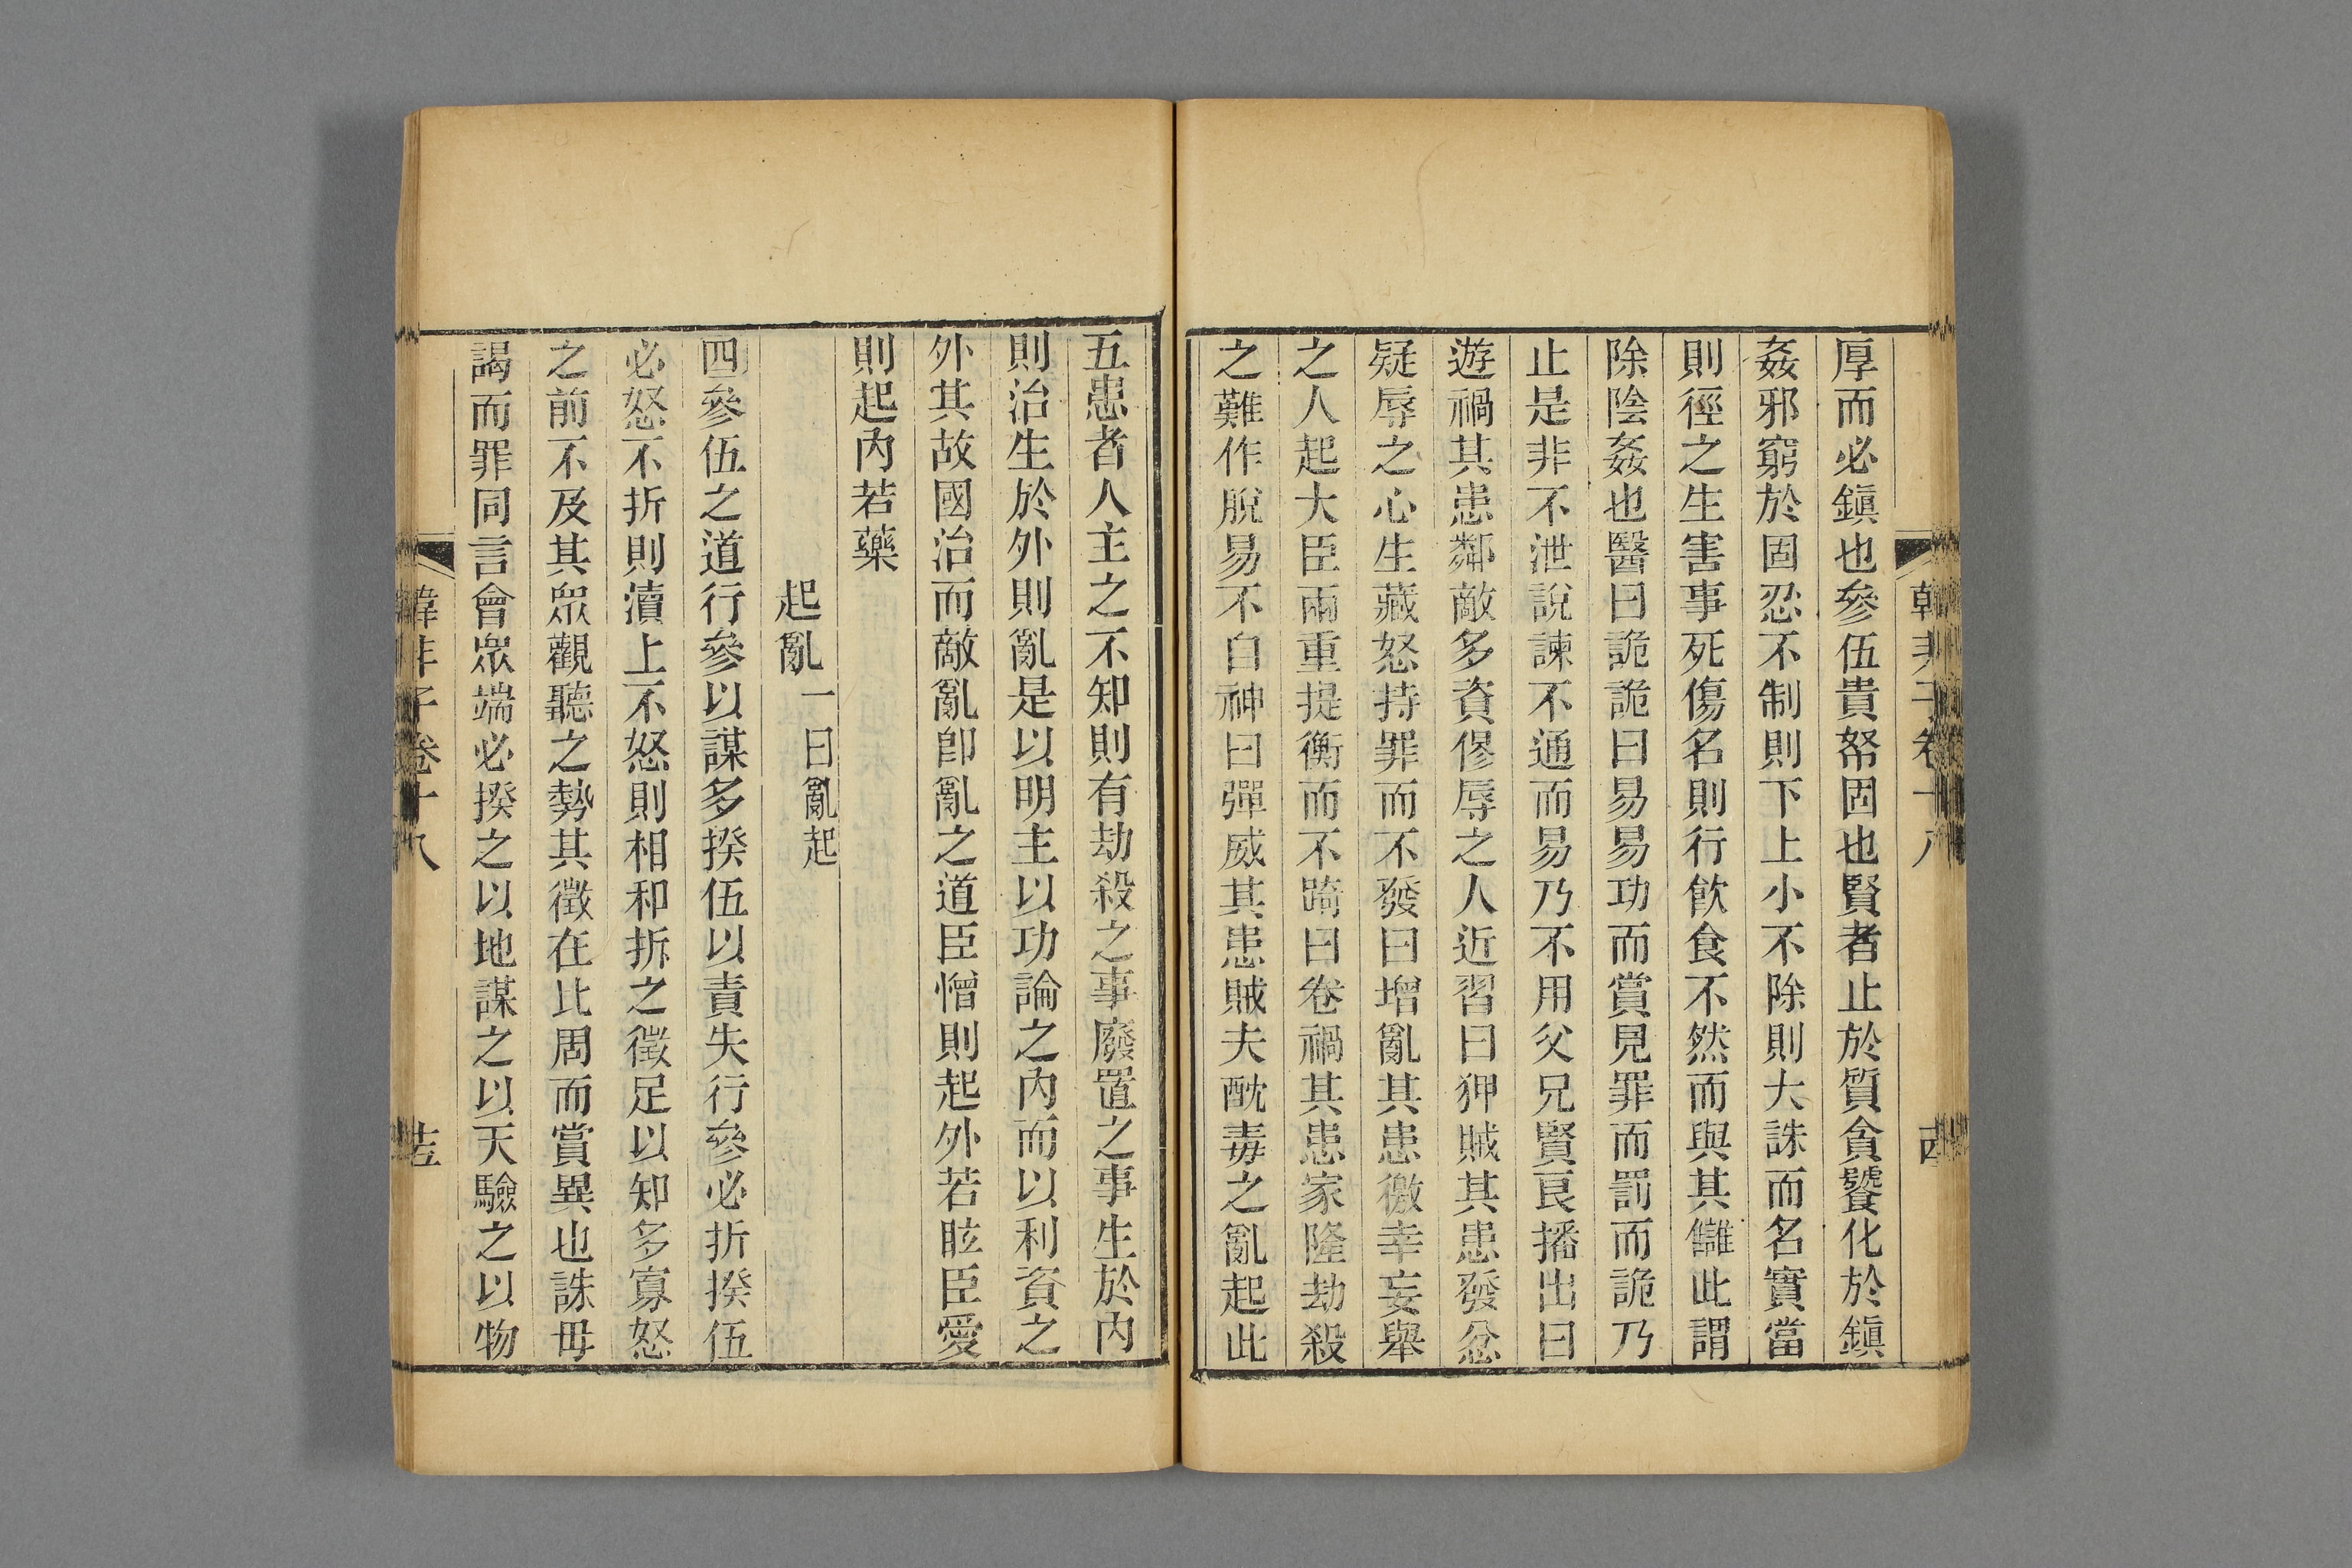 韓非子卷十八
厚而必鎮也參伍貴帑固也賢者止於質貪饕化於鎮
姦邪窮於固忍不制則下上小不除則大誅而名實當
則徑之生害事死傷名則行飮食不然而與其讎此謂
除陰姦也醫曰詭詭曰易易功而賞見罪而罰而詭乃
止是非不泄說諫不通而易乃不用父兄賢良播出曰
遊禍其患鄰敵多資僇辱之人近習曰狎賊其患發忿
疑辱之心生藏怒持罪而不發曰增亂其患徼幸妄舉
之人起大臣兩重提衡而不踦曰卷禍其患家隆劫殺
之難作脫易不自神曰彈威其患賊夫酖毒之亂起此
五患者人主之不知則有劫殺之事廢置之事生於內
則治生於外則亂是以明主以功論之內而以利資之
外其故國治而敵亂卽亂之道臣憎則起外若眩臣愛
則起內若藥
起亂一曰亂起
四參伍之道行參以謀多揆伍以責失行參必折揆伍
必怒不折則瀆上不怒則相和折之徵足以知多寡怒
之前不及其眾觀聽之勢其徵在比周而賞異也誅毋
謁而罪同言會眾端必揆之以地謀之以天驗之以物
韓非子卷十八